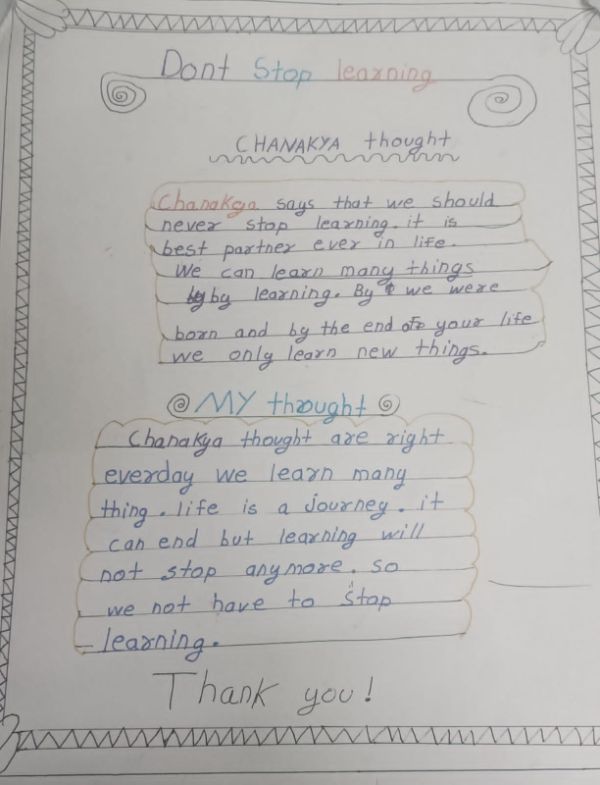 Dont Stop learning
CHANAKYA thought
Chanakya says that we should
never stop learning. it is
best partner ever in life.
We can learn many things
by learning. By we were
born and by the end of your life
we only learn new things.
MY thought
Chanakya thought are right
everday we learn many
thing. life is a journey. it
can end but learning will
not stop anymore. so
we not have to stop
learning.
Thank you!